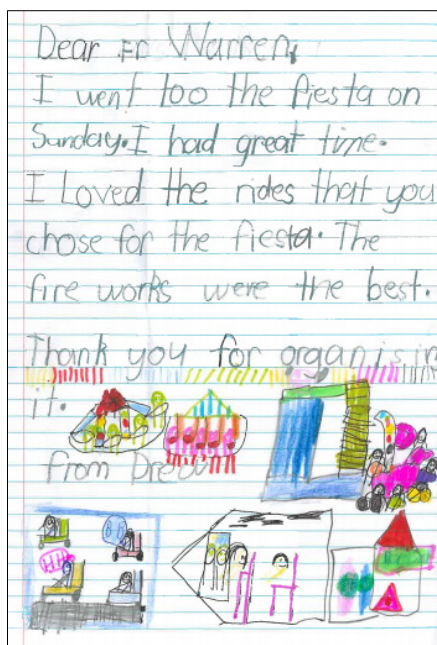 Dear Fr Warren,
I went too the fiesta on
Sunday. I had great time.
I Loved the rides that you
chose for the fiesta. The
fire works were the best.
Thank you for organisin
it.
from Drew